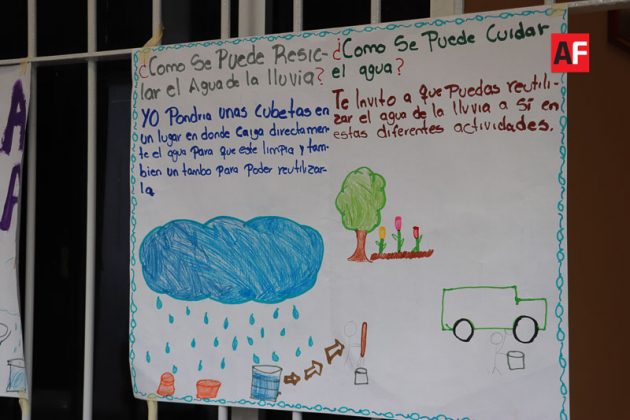 ¿Como Se Puede Resic-
lar el Agua de la lluvia?
YO Pondria unas cubetas en
un lugar en donde Caiga directamen-
te el agua Para que este limpia y tam-
bien un tambo para Poder reutilizar-
la
¿Como Se Puede Cuidar
el agua?
Te Invito a que Puedas reutili-
zar el agua de la lluvia a Sí en
estas diferentes actividades.
AF
A
A